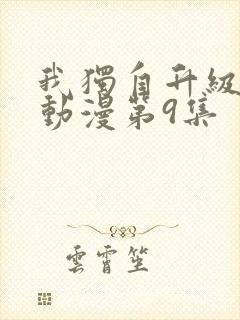 我獨自升級
動漫第9集
雲霄笙